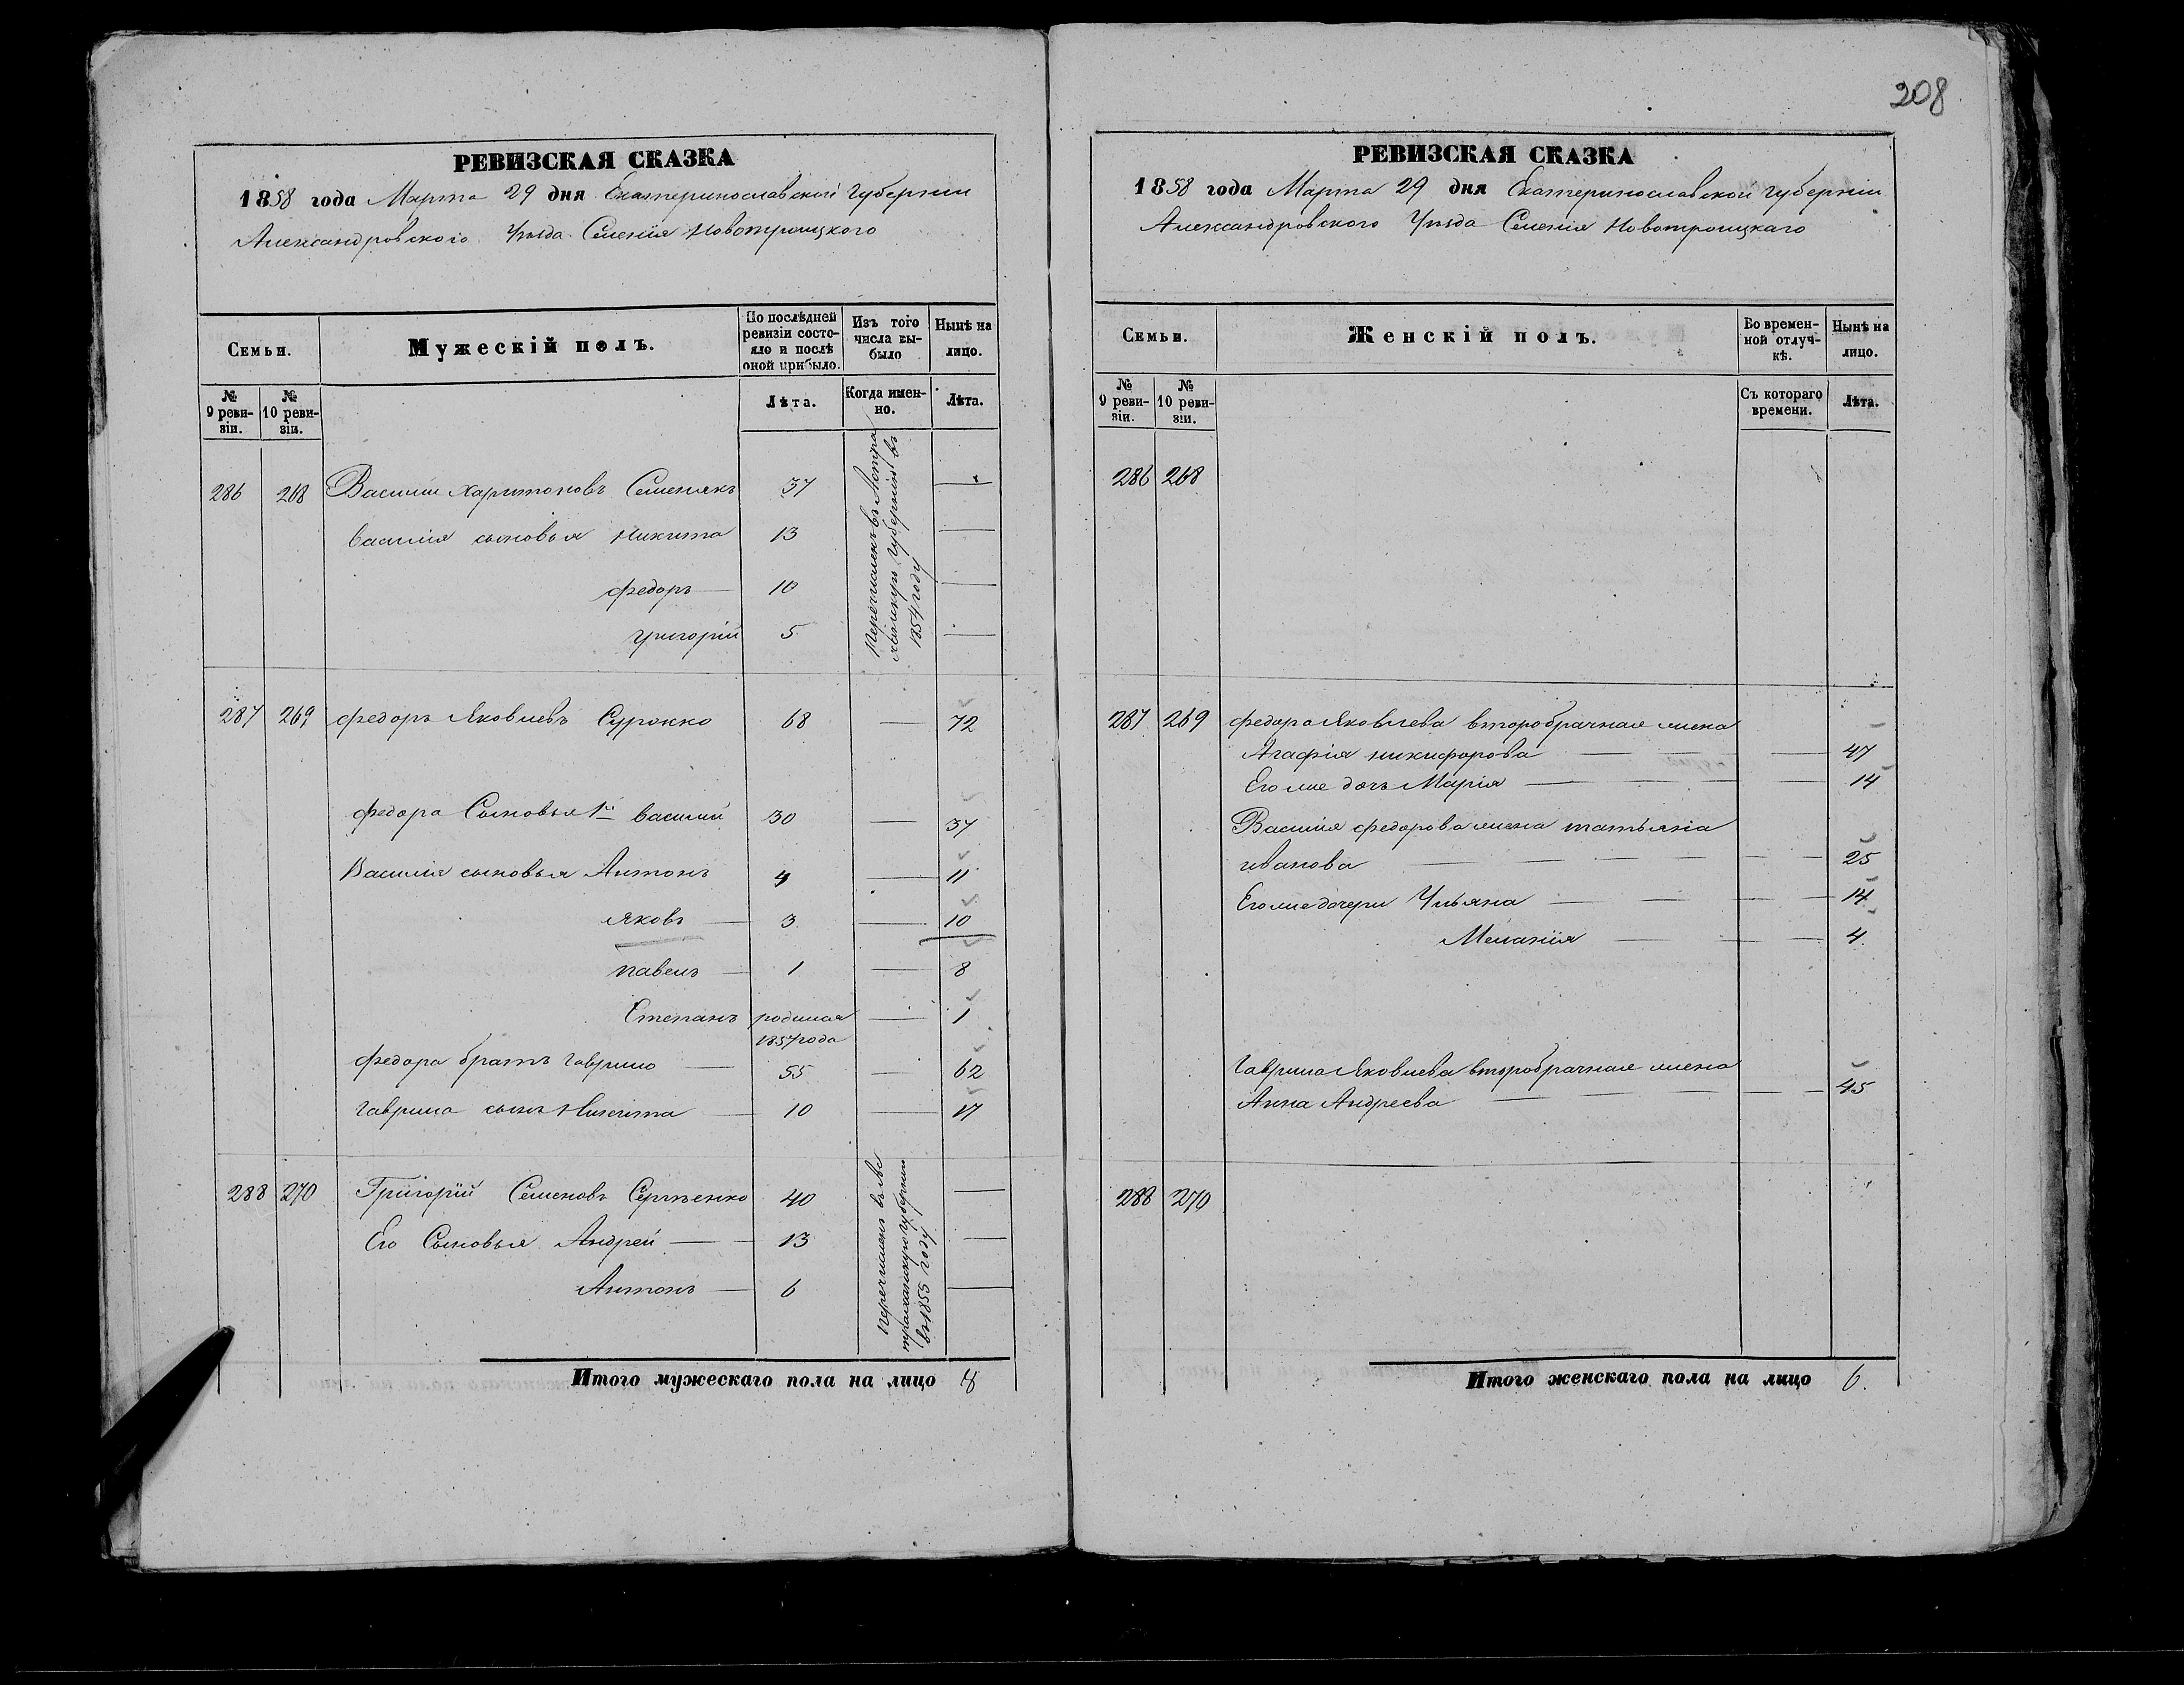 208
РЕВИЗСКАЯ СКАЗКА
1858 года Марта 29 дня Екатеринославской Губернии
Александровского Уѣзда Селенія Новотроицкого
Семьи.
Мужескій полъ.
По послѣдней ревизіи состояло и послѣ оной прибыло.
Изъ того числа выбыло
Нынѣ на лицо.
№ 9 ревизіи.
№ 10 ревизіи.
Лѣта.
Когда именно.
Лѣта.
286 268 Василий Харитоновъ Семенякъ 37 —
Василія сыновья Никита 13 —
Федоръ — 10 —
Григорій 5 —
Перечисленъ въ
Губернію въ
1854 году
287 269 Федоръ Яковлевъ Сурокко 68 — 72
Федора Сыновья 1й Василий 30 — 37
Василія сыновья Антонъ 4 — 11
Яковъ — 3 — 10
Павелъ — 1 — 8
Степанъ родился — 1
1857 года
Федора братъ Гаврило — 55 — 62
Гаврила сынъ Никита — 10 — 17
288 270 Григорій Семеновъ Сергѣенко 40 —
Его Сыновья Андрей — 13 —
Антонъ — 6 —
Перечисленъ въ Ас
траханскую губернию
въ 1855 году
Итого мужескаго пола на лицо 8
РЕВИЗСКАЯ СКАЗКА
1858 года Марта 29 дня Екатеринославской Губерніи
Александровского Уѣзда Селенія Новотроицкаго
Семьи.
Женскій полъ.
Во временной отлучкѣ.
Нынѣ на лицо.
№ 9 ревизіи.
№ 10 ревизіи.
Съ котораго времени.
Лѣта.
286 268
287 269 Федора Яковлева второбрачная жена
Агафія Никифорова — — — 47
Его же дочь Марія — — — 14
Василія Федорова жена Татьяна
Иванова — — — — — 25
Его же дочери Ульяна — — — — 14
Меланія — — — 4
Гаврила Яковлева второбрачная жена
Анна Андреева — — — 45
288 270
Итого женскаго пола на лицо 6.